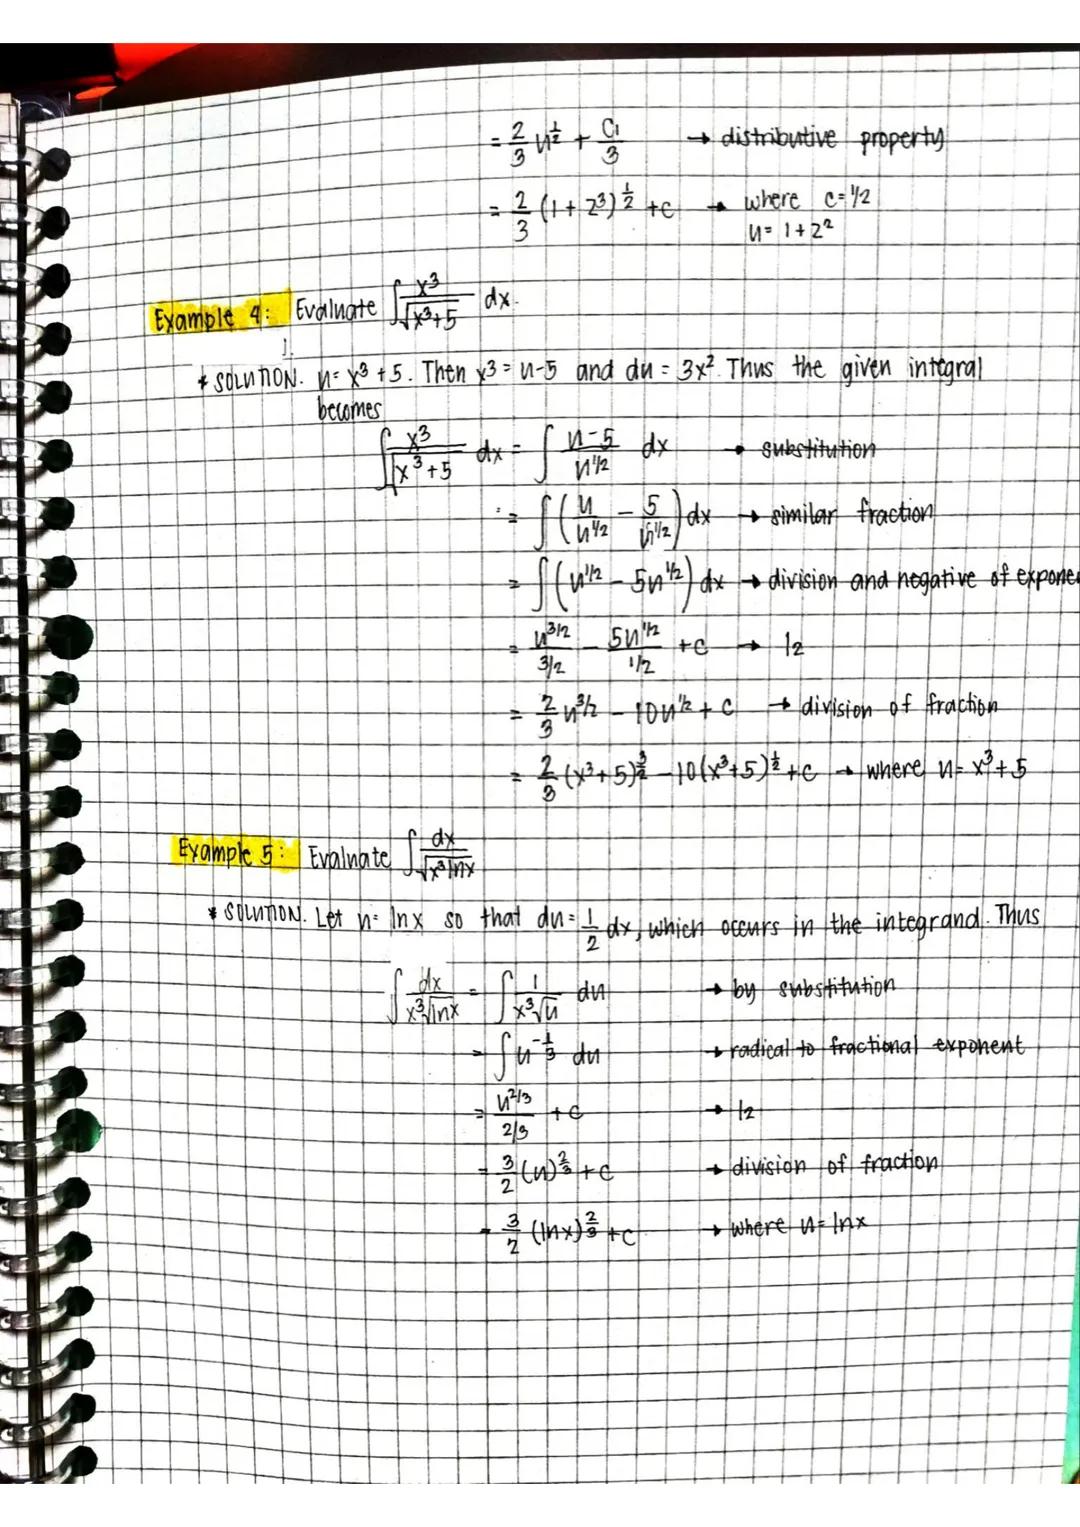 = 2/3 u^1/2 + C₁/3 → distributive property
= 2/3 (1 + z³)^1/2 + c → where c = 1/2
u = 1 + z²
Example 4: Evaluate ∫ x³/√(x³+5) dx.
* SOLUTION. u = x³ + 5. Then x³ = u-5 and du = 3x². Thus the given integral
becomes
∫ x³/√(x³+5) dx = ∫ (u-5)/u^1/2 dx → substitution
= ∫ (u/u^1/2 - 5/u^1/2) dx → similar fraction
= ∫ (u^1/2 - 5u^1/2) dx → division and negative of expone
= u^3/2 / 3/2 - 5u^1/2 / 1/2 + c → 12
= 2/3 u^3/2 - 10u^1/2 + c → division of fraction
= 2/3 (x³+5)^3/2 - 10(x³+5)^1/2 + c → where u = x³+5
Example 5: Evaluate ∫ dx/√(x³lnx)
* SOLUTION. Let u = lnx so that du = 1/2 dx, which occurs in the integrand. Thus
∫ dx/(x ³√lnx) = ∫ 1/(x ³√u) du → by substitution
= ∫ u^-1/3 du → radical to fractional exponent
= u^2/3 / 2/3 + c → 12
= 3/2 (u)^2/3 + c → division of fraction
= 3/2 (lnx)^2/3 + c → where u = lnx